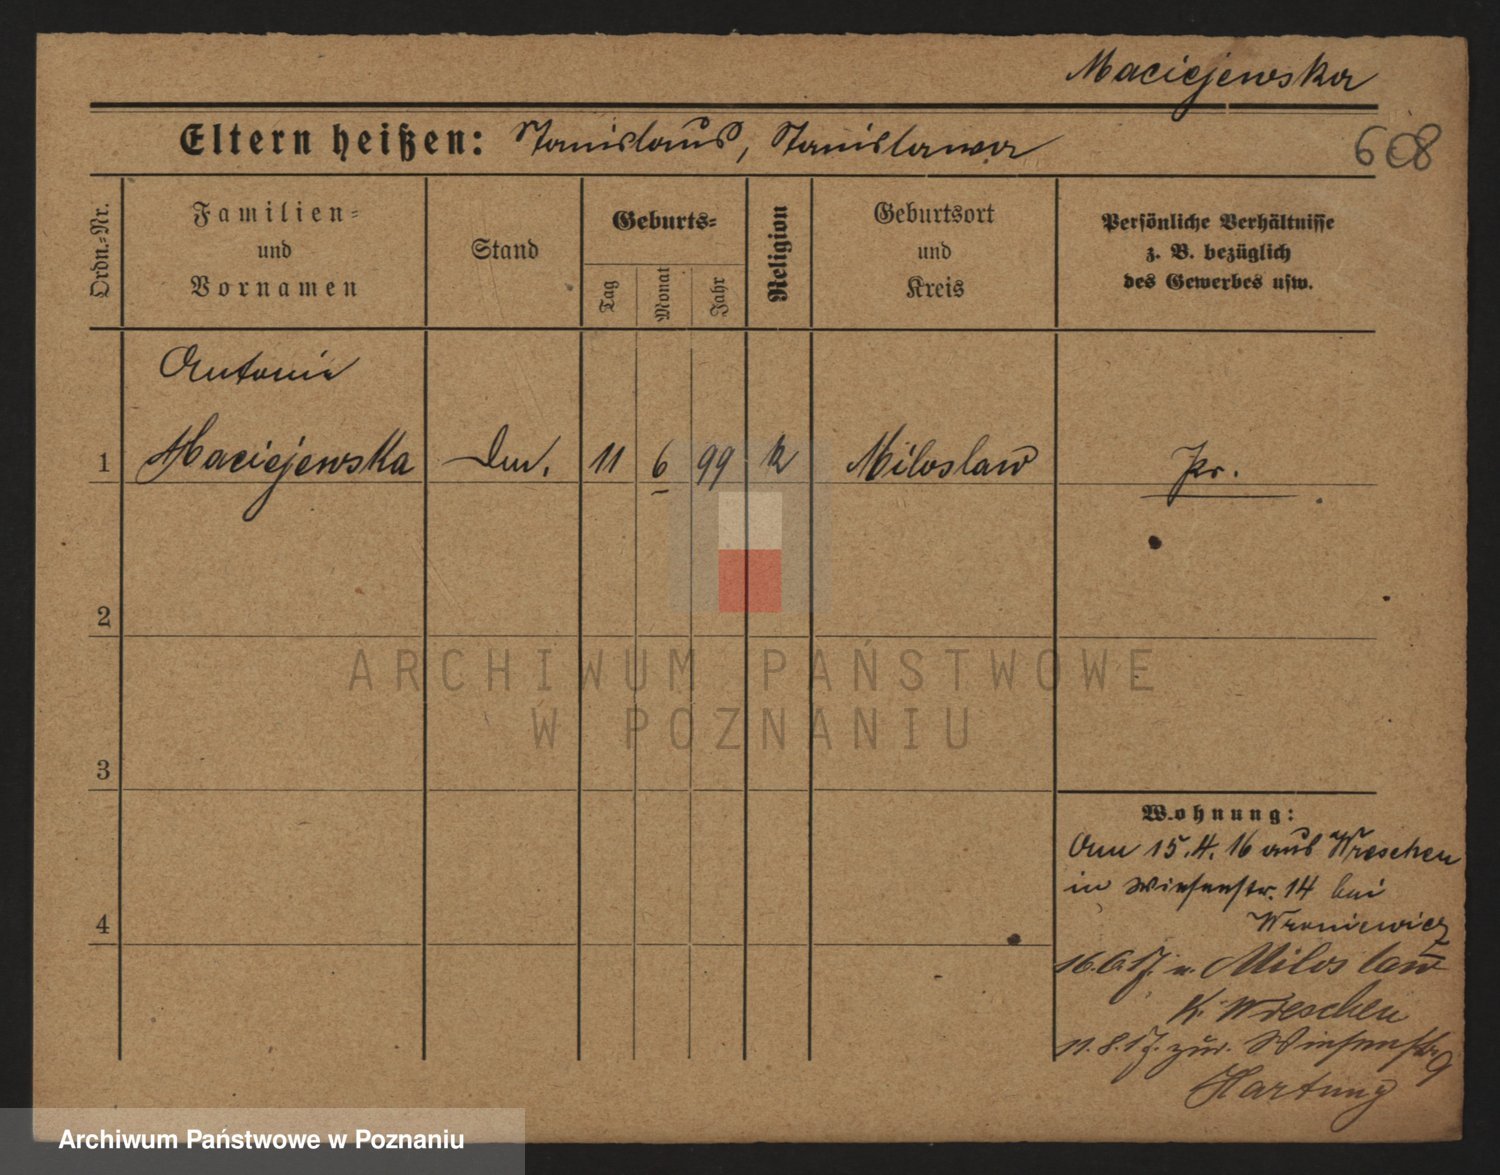 Maciejewska
Eltern heißen: Stanislaus, Stanislawa
608
Ordn.-Nr.
Familien-
und
Vornamen
Stand
Geburts-
Tag
Monat
Jahr
Religion
Geburtsort
und
Kreis
Persönliche Verhältnisse
z. B. bezüglich
des Gewerbes usw.
Antonie
1 Maciejewska 11 6 99 k Miloslaw Pr.
2
ARCHIWUM PAŃSTWOWE
W POZNANIU
3
Wohnung:
Am 15.4.16 aus Wreschen
in Wiesenstr. 14 bei
4
Wroniewicz
16.6.17. n. Miloslaw
K. Wreschen
11.8.17. zur. Wiesenstr 9
Hartung
Archiwum Państwowe w Poznaniu